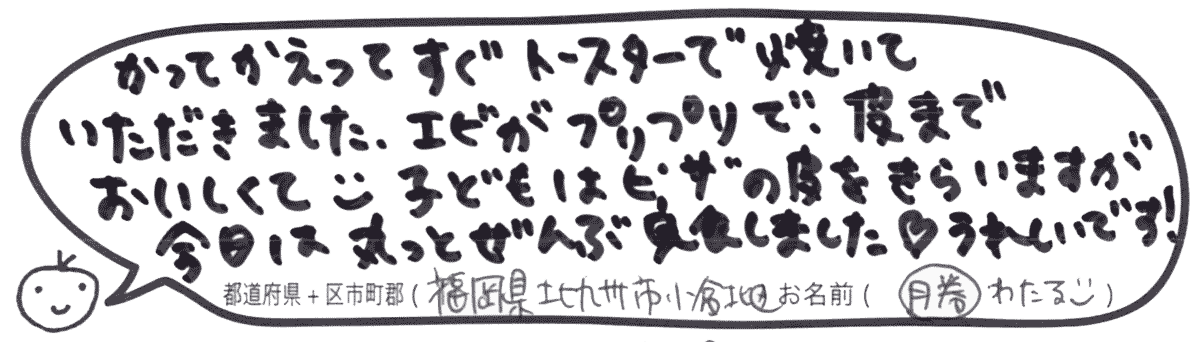 かってかえってすぐトースターで焼いて
いただきました、エビがプリっプリで、皮まで
おいしくて 子どもはピザの皮をきらいますが
今日は丸っとぜんぶ完食しました♡うれしいです!
都道府県+区市町郡(福岡県北九州市小倉北区 お名前( わたる )